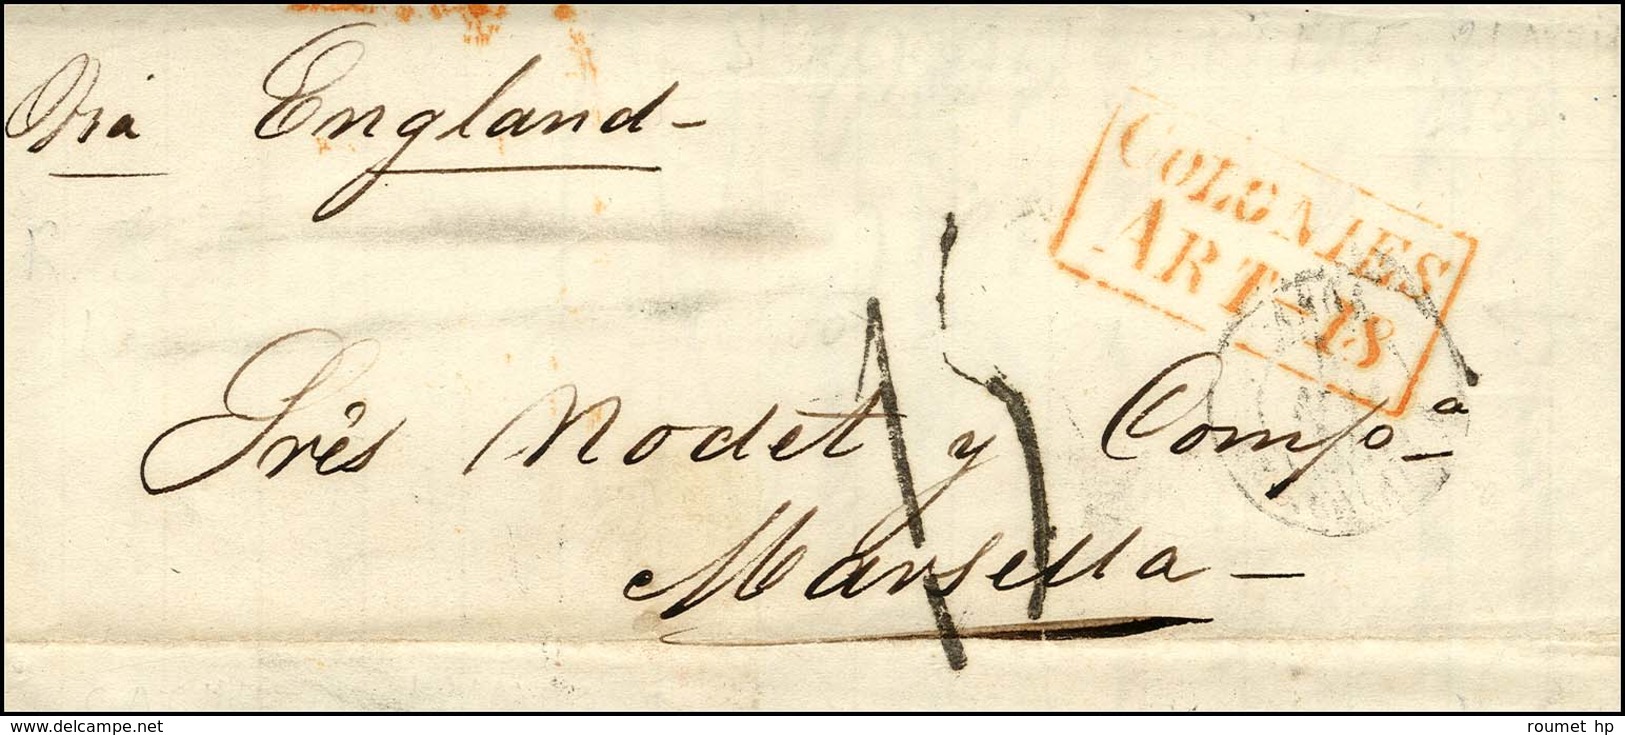 Via England-
COLONIES
ART-18
15
Srês Nodet y Comp.a
Marsella-
www.delcampe.net
roumet_hp